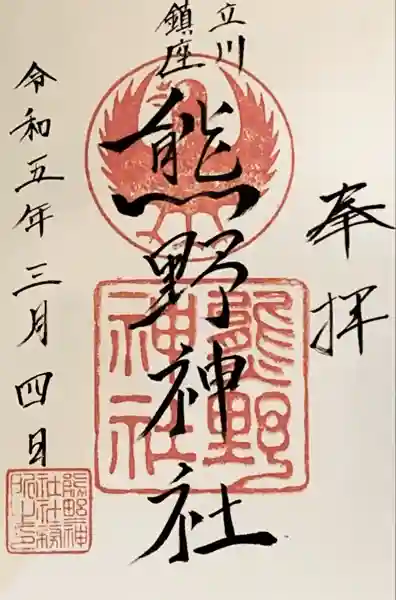 奉拝
立川
鎮座
熊野神社
熊野
神社
令和五年三月四日
熊野神
社社務
所之印